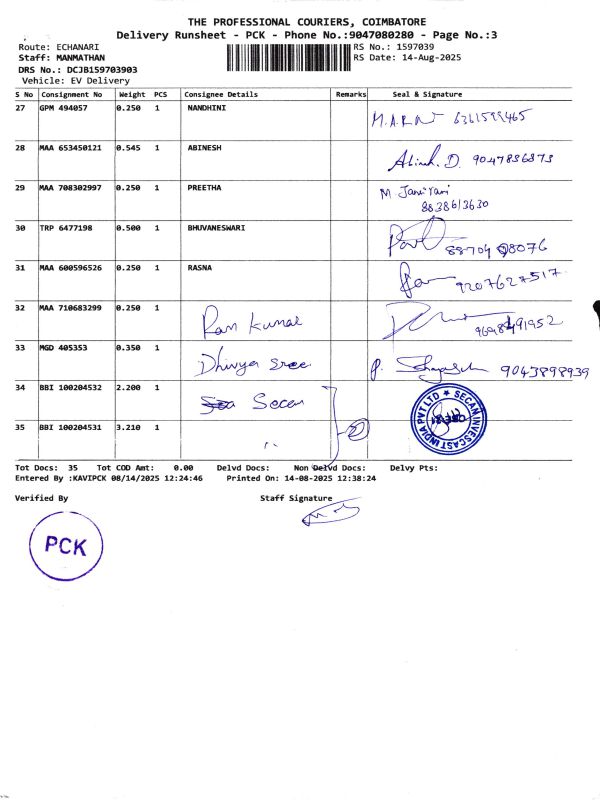 THE PROFESSIONAL COURIERS, COIMBATORE
Delivery Runsheet - PCK - Phone No.:9047080280 - Page No.:3
Route: ECHANARI
Staff: MANMATHAN
DRS No.: DCJB159703903
Vehicle: EV Delivery
RS No.: 1597039
RS Date: 14-Aug-2025
S No Consignment No Weight PCS Consignee Details Remarks Seal & Signature
27 GPM 494057 0.250 1 NANDHINI 6361599465
28 MAA 653450121 0.545 1 ABINESH Abinesh. D 9047836373
29 MAA 708302997 0.250 1 PREETHA M 8838613630
30 TRP 6477198 0.500 1 BHUVANESWARI
31 MAA 600596526 0.250 1 RASNA 9207627517
32 MAA 710683299 0.250 1 Ram kumar
33 MGD 405353 0.350 1 Dhivya sree P. 9043898939
34 BBI 100204532 2.200 1 Secan
SECAN INVESCAST INDIA PVT LTD
35 BBI 100204531 3.210 1 "
Tot Docs: 35 Tot COD Amt: 0.00 Delvd Docs: Non Delvd Docs: Delvy Pts:
Entered By :KAVIPCK 08/14/2025 12:24:46 Printed On: 14-08-2025 12:38:24
Verified By Staff Signature
PCK